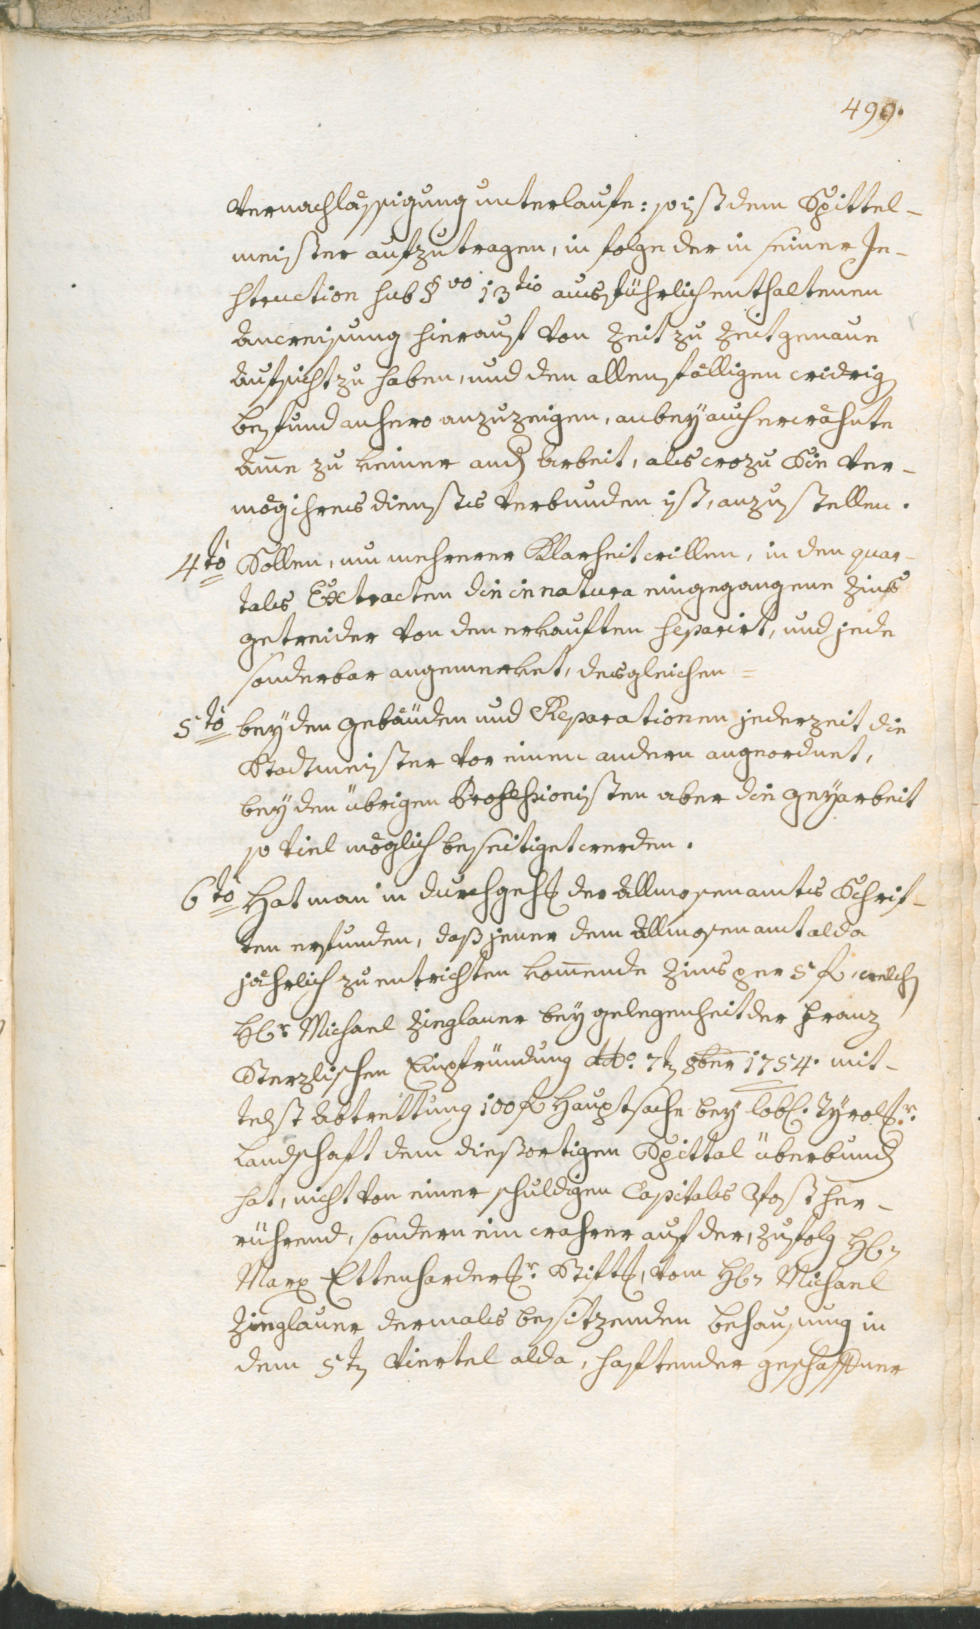 499.
Vernachläßsigung unterlaufe: so ist dem Spittel-
meister aufzutragen, in folge der in seiner In-
struction sub § vo 13tio ausführlich enthaltenen
Anweisung hierauf von Zeit zu Zeit genaue
Aufsicht zu haben, und den allenfälligen widrig
befund anhero anzuzeigen, anbey auch erwähnte
Ame zu keiner and Arbeit, als wozu Sie ver-
mög ihres diensts verbunden ist, anzustellen.
4to Sollen, um mehrerer Klarheit willen, in den quar-
tals Extracten die in natura eingegangene Zins
getreider von den erkauften separirt, und jede
sonderbar angemerket, desgleichen =
5to bey den gebäuden und Reparationen jederzeit die
Stadtmeister vor einem andern angeordnet,
bey den übrigen Professionisten aber die Geyarbeit
so viel möglich beseitiget werden.
6to Hat man in durchgeht des Allmosenamts Schrif-
ten erfunden, daß jener dem Allmosenamt alda
jährlich zu entrichten komende Zins per 5 f, welch
Hr Michael Zieglauer bey gelegenheit der Franz
Sterzlischen Einpfründung ddo. 7t 8ber 1754. mit-
telst Abtrettung 100 f Hauptsache bey lobl. Tyrolr.
Landschaft dem dießortigen Spittal überbund
hat, nicht von einer schuldigen Capitals Post her-
rührend, sondern ein wahrer auf der, zufolg Hr
Marx Ettenharders. Stifts, vom Hr Michael
Zieglauer dermals besitzenden behausung in
dem 5t Viertel alda, haftender geschaffner